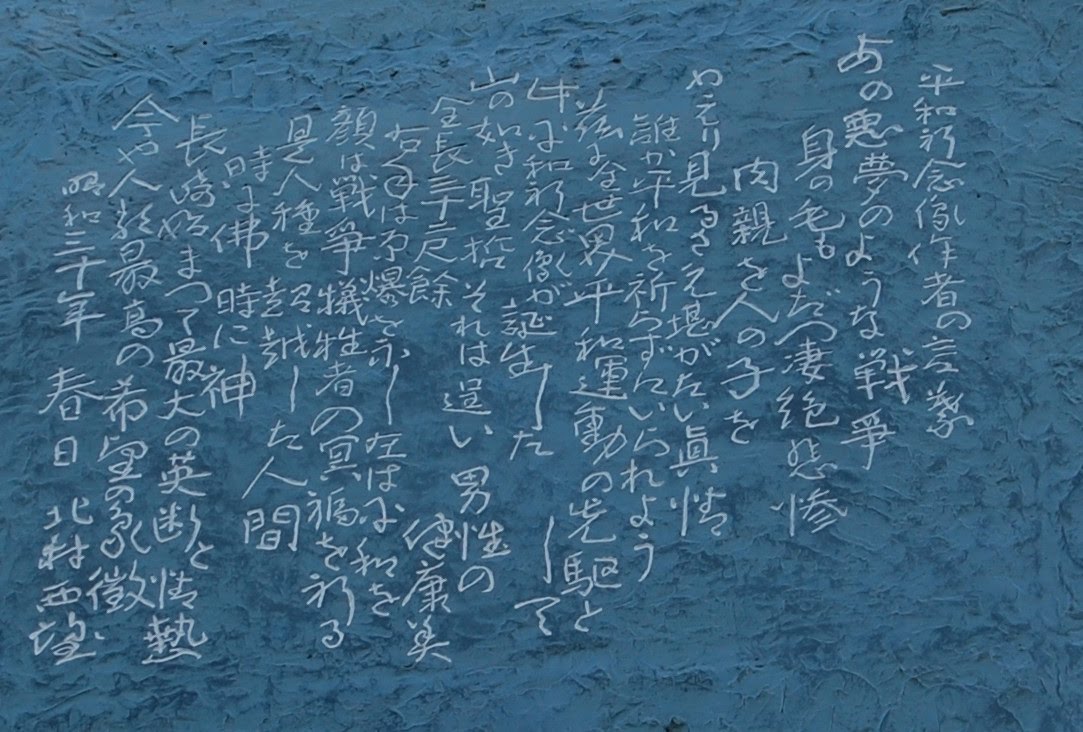 平和祈念像作者の言葉
あの悪夢のような戦争
身の毛もよだつ凄絶悲惨
肉親を人の子を
かえり見るさえ堪がたい眞情
誰か平和を祈らずにいられよう
茲に全世界平和運動の先駆と
して
平和祈念像が誕生した
山の如き聖哲 それは逞い男性の
健康美
全長三十二尺餘
右手は原爆を示し左は平和を
顔は戦争犠牲者の冥福を祈る
是人種を超越した人間
時に佛 時に神
長崎始まつて最大の英断と情熱
今や人類最高の希望の象徴
昭和三十年 春日 北村西望